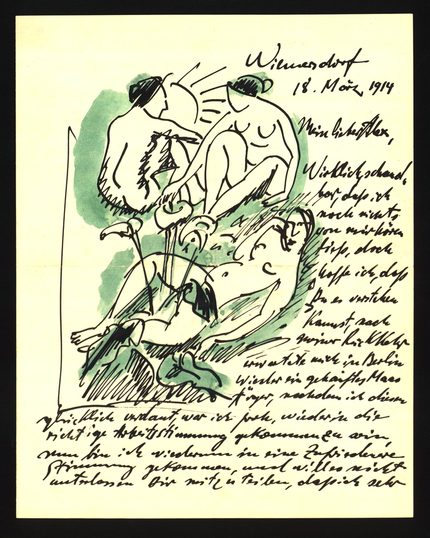 Wiemersdorf
18. März, 1914
Mein lieber Alex,
Wirklich schand-
bar, daß ich
noch nichts
von mir hören
ließ, doch
hoffe ich, daß
Du es verstehen
kannst, nach
meiner Rückkehr
erwartete mich in Berlin
wieder ein gehäuftes Maas
Ärger, nachdem ich diesen
glücklich verdaut, war ich froh, wieder in die
richtige Arbeitsstimmung gekommen zu sein,
nun bin ich wiederum in eine
Stimmung gekommen, und will es nicht
unterlassen Dir mitzuteilen, daß ich sehr